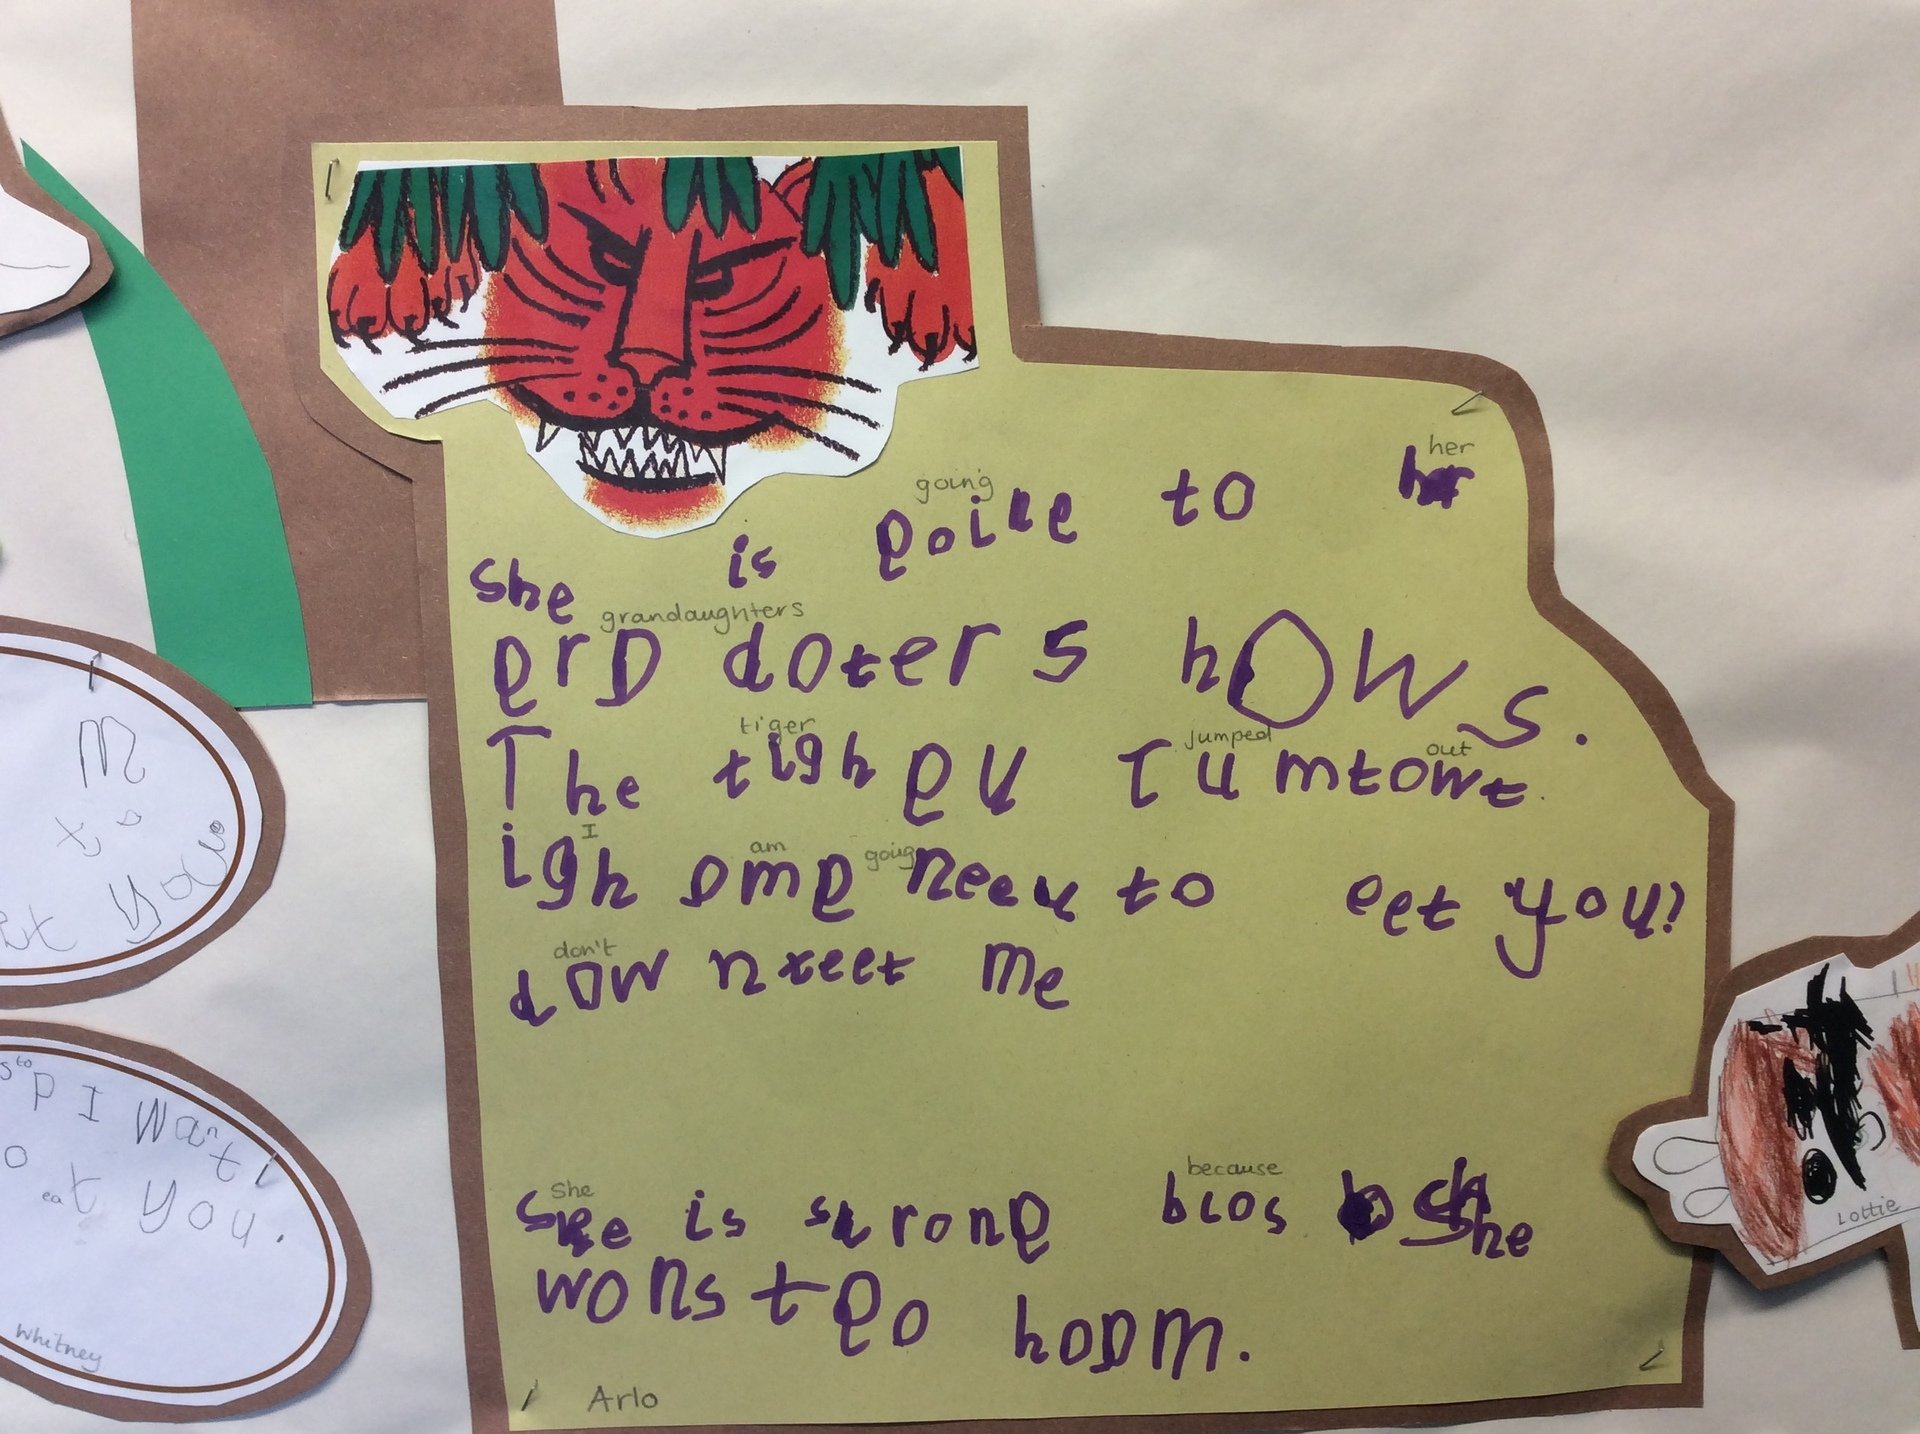 going her
she is goine to her
grandaughters
grD doters hOWs.
tiger jumped out
The tighgu Jumtowt.
I am going
igh amg neeu to eet you?
don't
dow nteet me
She because
She is strong bcos she
wons t go hoam.
Arlo
M
to
you
p I want
to
eat you.
Whitney
Lottie